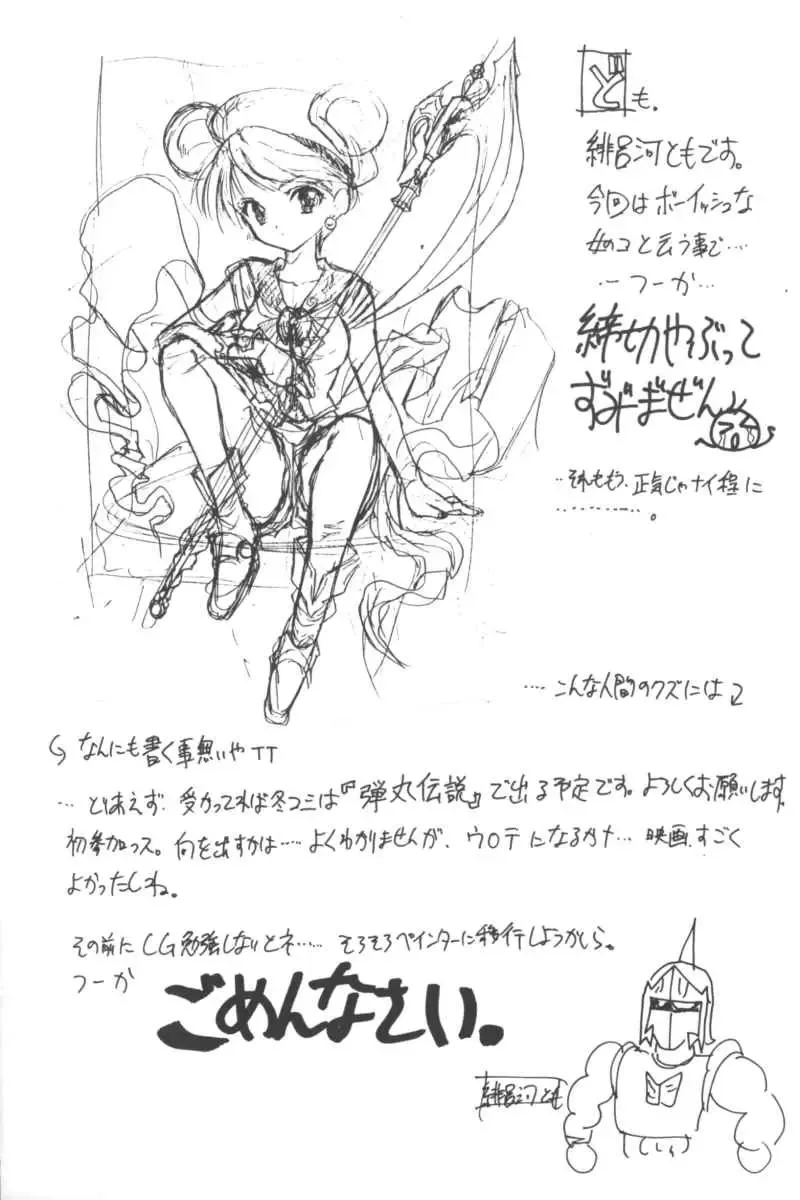 ども.
緋呂河ともです。
今回はボーイッシュな
女のコと云う事で…
…つーか…
締切やぶって
ずみまぜん
…それももう、正気じゃナイ程に
………。
…こんな人間のクズには
なんにも書く事無いやTT
…とりあえず、受かってれば冬コミは『弾丸伝説』で出る予定です。よろしくお願いします
初参加っス。何を出すかは……よくわかりませんが、ウロテになるかナ… 映画、すごく
よかったしね。
その前にCG勉強しないとネ…… そろそろペインターに移行しようかしら。
つーか
ごめんなさい。
緋呂河とも